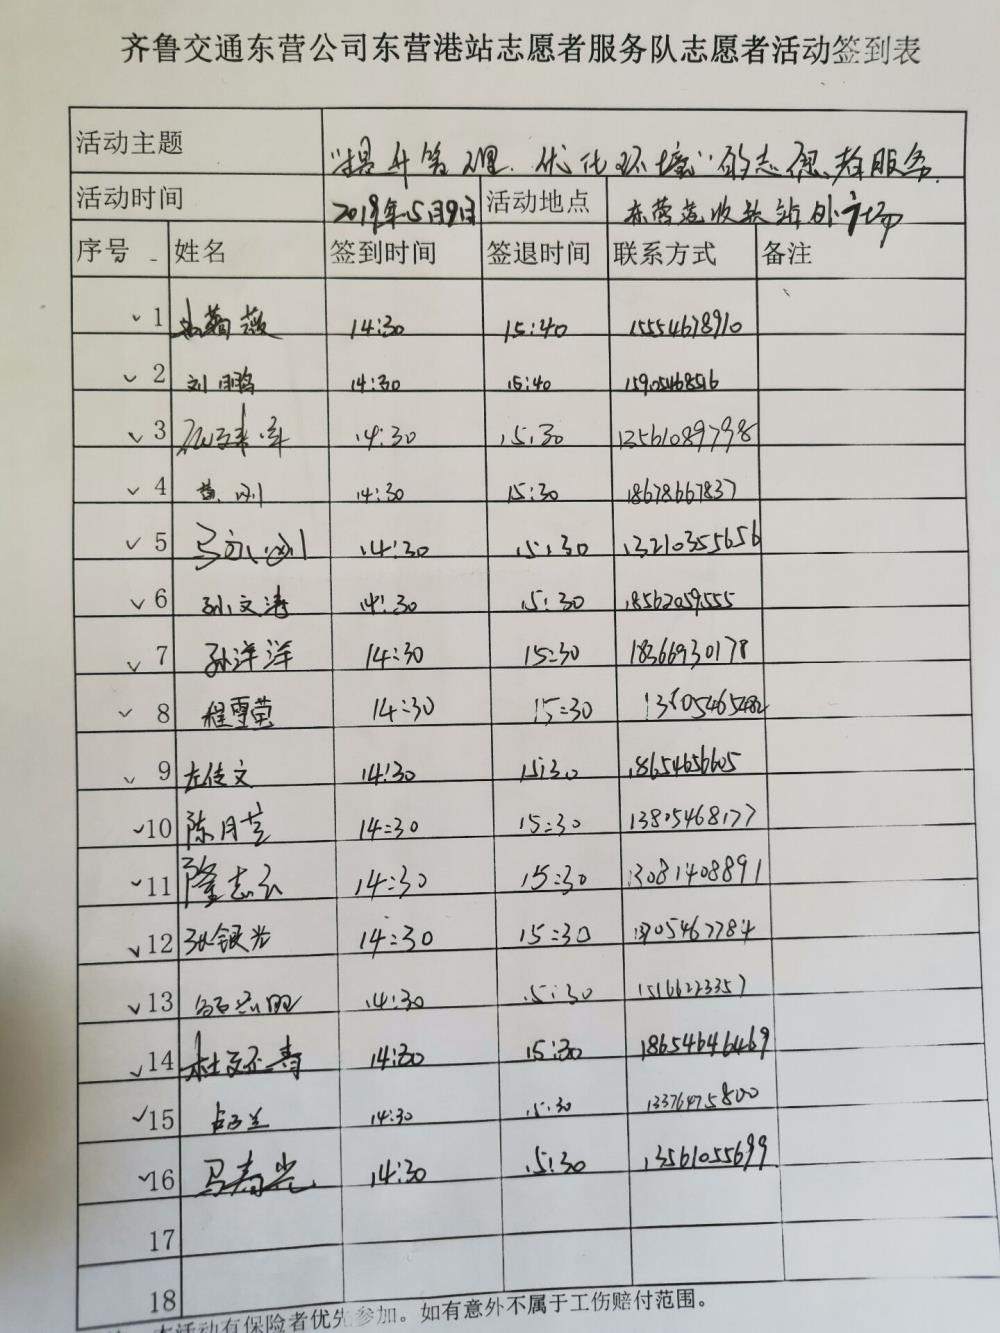 齐鲁交通东营公司东营港站志愿者服务队志愿者活动签到表
活动主题 “提升管理、优化环境”的志愿者服务
活动时间 2019年5月9日 活动地点 东营港收费站外广场
序号 姓名 签到时间 签退时间 联系方式 备注
1 薇 14:30 15:40 15554678910
2 刘鹏 14:30 15:40
3 14:30 15:30 13561089798
4 黄刚 14:30 15:30 18678667837
5 马永刚 14:30 15:30 13210355656
6 孙文涛 14:30 15:30 18562059555
7 孙洋洋 14:30 15:30 18366930178
8 程雪莹 14:30 15:30
9 左传文 14:30 15:30 18654656605
10 陈月芝 14:30 15:30 13805468177
11 隆志 14:30 15:30 13081408891
12 张银光 14:30 15:30
13 14:30 15:30 15166223357
14 杜 寿 14:30 15:30 18654646469
15 兰 14:30 15:30 13376475800
16 马寿光 14:30 15:30 13561055699
17
18
本活动有保险者优先参加。如有意外不属于工伤赔付范围。